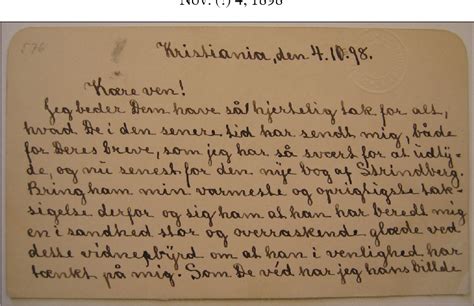 Nov. (?) 4, 1898
576
Kristiania, den 4.10.98.
Kære ven!
Jeg beder Dem have så hjertelig tak for alt,
hvad De i den senere tid har sendt mig, både
for Deres breve, som jeg har så svært for at udty-
de, og nu senest for den nye bog af Strindberg.
Bring ham min varmeste og oprigtigste tak-
sigelse derfor og sig ham at han har beredt mig
en i sandhed stor og overraskende glæde ved
dette vidnesbyrd om at han i venlighed har
tænkt på mig. Som De véd har jeg hans billede